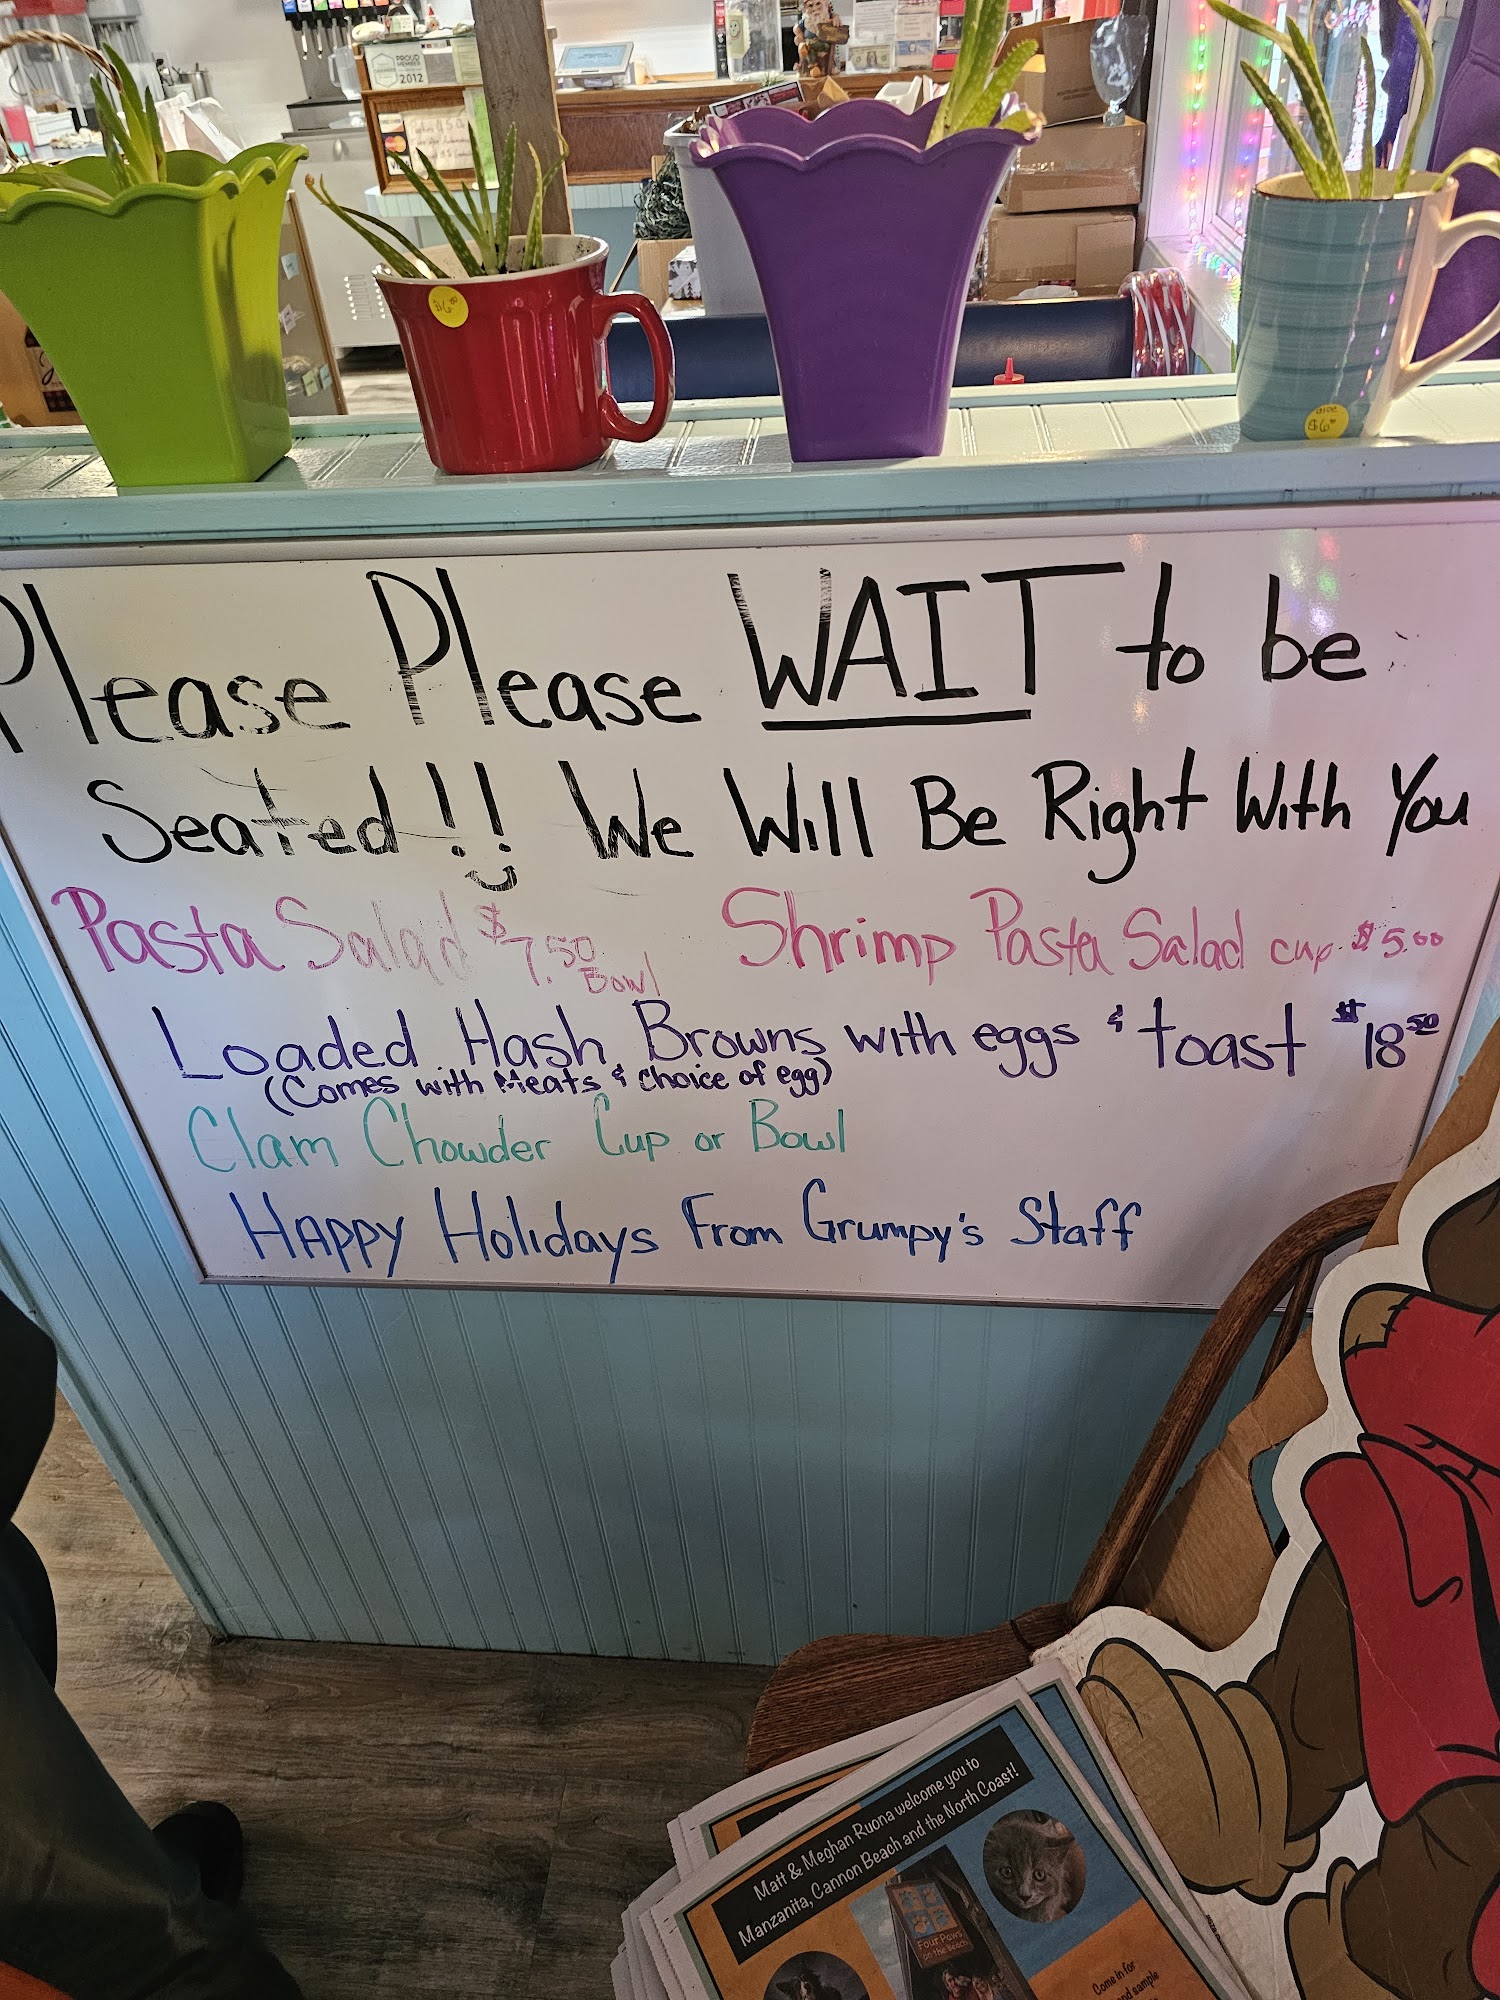 PROUD
MEMBER
2012
$6.00
aloe
$6.00
Please Please WAIT to be
Seated!! We Will Be Right With You
Pasta Salad $7.50 Bowl
Shrimp Pasta Salad cup $5.00
Loaded Hash Browns with eggs & toast $18.50
(Comes with Meats & choice of egg)
Clam Chowder Cup or Bowl
HAPPY Holidays From Grumpy's Staff
Matt & Meghan Ruona welcome you to
Manzanita, Cannon Beach and the North Coast!
Four Paws
on the Beach
Come in for
and sample